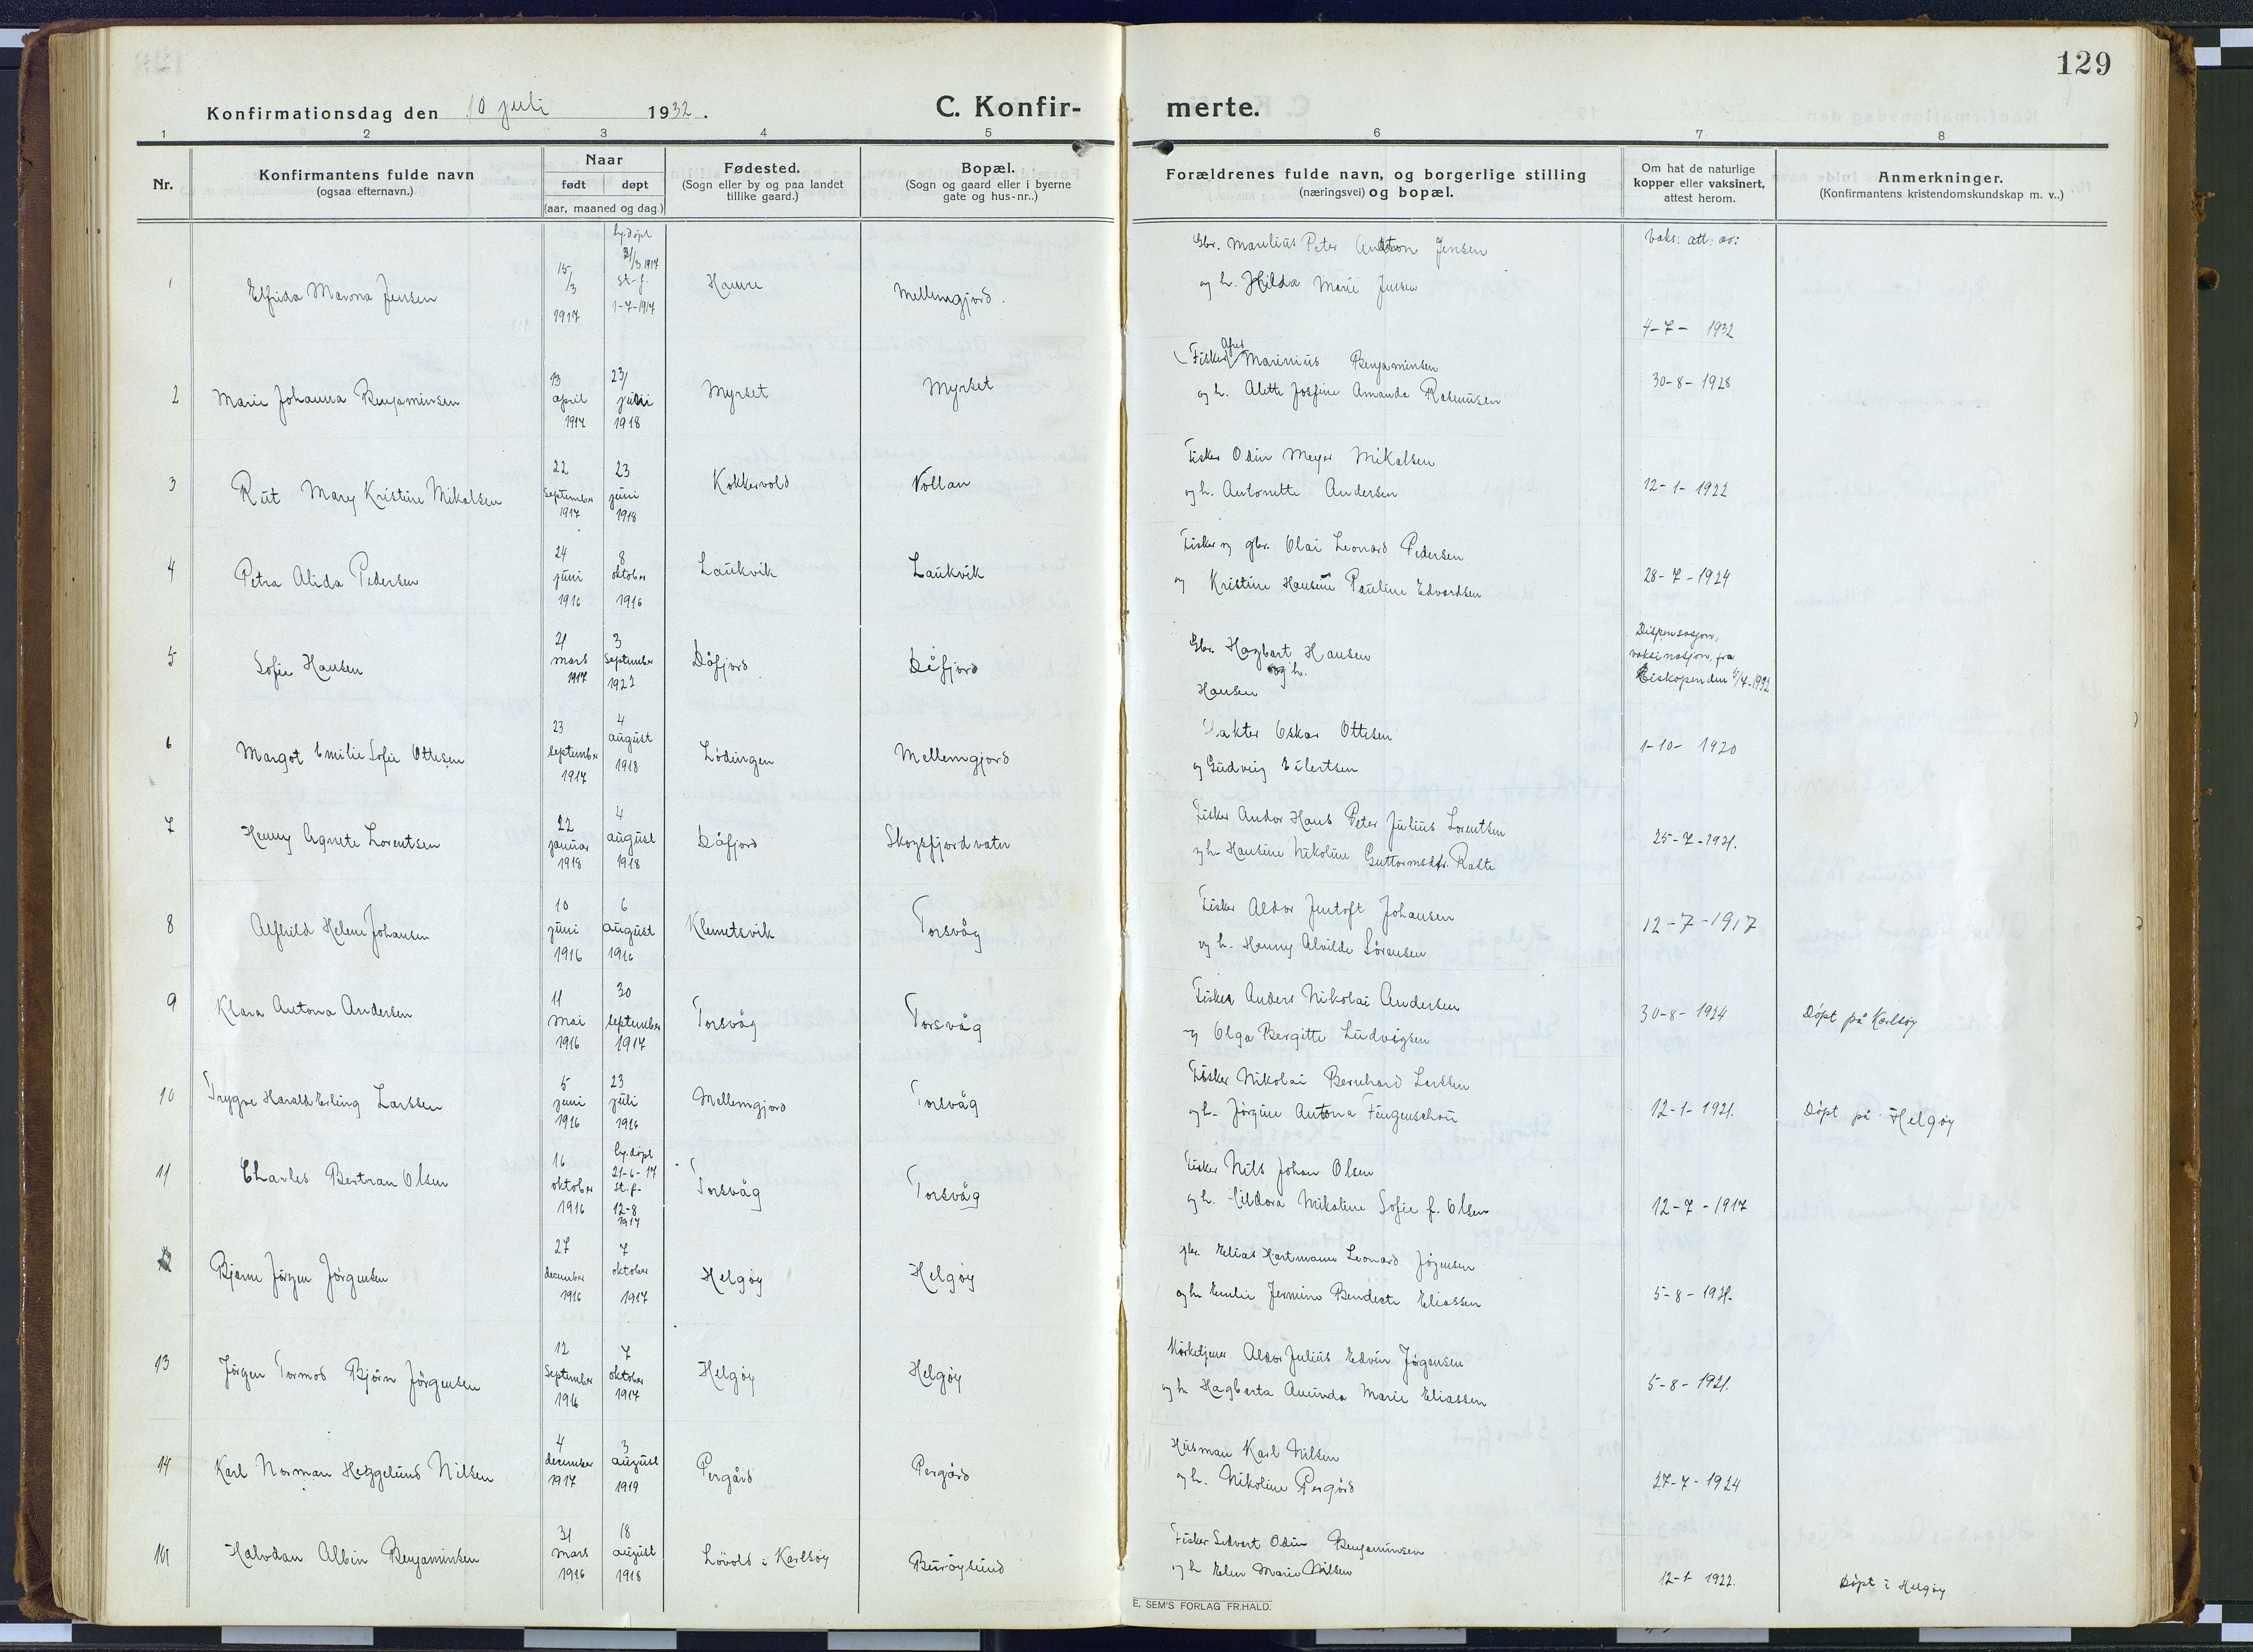 129
Konfirmationsdag den 10 juli 1932.
C. Konfir-
merte.
1 2 3 4 5 6 7 8
Nr.
Konfirmantens fulde navn
(ogsaa efternavn.)
Naar
født døpt
(aar, maaned og dag.)
Fødested.
(Sogn eller by og paa landet
tillike gaard.)
Bopæl.
(Sogn og gaard eller i byerne
gate og hus-nr..)
Forældrenes fulde navn, og borgerlige stilling
(næringsvei) og bopæl.
Om hat de naturlige
kopper eller vaksinert,
attest herom.
Anmerkninger.
(Konfirmantens kristendomskundskap m. v..)
1 Elfrida Marona Jensen
15/3 1917
hj.døpt 21/3 1917 st-f. 1-7-1917
Mellemgjord.
Gbr. Marelius Peter Anton Jensen
og h. Hilda Marie Jensen
Vaks: att: av:
4-7- 1932
2 Marie Johanna Benjaminsen
13 april 1917
23/ juli 1918
Myrset
Myrset
Fisker Alfred Marinius Benjaminsen
og h. Alette Josfine Amanda Rasmusen
30-8-1928
3 Rut Mary Kristine Mikalsen
22 september 1917
23 juni 1918
Kokkervold
Vollan
Fisker Odin Meyer Mikalsen
og h. Antonette Andersen
12-1-1922
4 Petra Alida Pedersen
24 juni 1916
8 oktober 1916
Laukvik
Laukvik
Fisker og gbr. Olai Leonard Pedersen
og Kristine Hansine Pauline Edvardsen
28-7-1924
5 Sofie Hansen
21 mars 1917
3 september 1922
Dåfjord
Dåfjord
Gbr. Hagbart Hansen
og h.
Hansen
Dispensasjon,
vaksinasjon, fra
Biskopen den 5/7-1932
6 Margot Emilie Sofie Ottesen
23 september 1917
4 august 1918
Lødingen
Mellemgjord
Oskar Ottesen
og Gudveig Eilertsen
1-10- 1920
7 Henny Agnete Lorentsen
22 januar 1918
4 august 1918
Dåfjord
Skogsfjordvatn
Fisker Andor Hans Peter Julius Lorentsen
og h. Hansine Nikoline Guttormsdtr. Raste
25-7-1921.
8 Alfhild Helene Johansen
10 juni 1916
6 august 1916
Klemetsvik
Torsvåg
Fisker Aldor Jentoft Johansen
og h. Henny Alvilde Sørensen
12-7-1917
9 Klara Antona Andersen
11 mai 1916
30 september 1917
Torsvåg
Torsvåg
Fisker Anders Nikolai Andersen
og Olga Bergitte Ludvigsen
30-8-1924
Døpt på Karlsøy
10 Trygve Harald Erling Larssen
5 juni 1916
23 juli 1916
Mellemgjord
Torsvåg
Fisker Nikolai Bernhard Larssen
og h. Jørgine Antona Fingenschou
12-1-1921.
Døpt på Helgøy
11 Charles Bertran Olsen
16 oktober 1916
hj.døpt 21-6-17 st.f. 12-8 1917
Torsvåg
Torsvåg
Fisker Nils Johan Olsen
og h. Hildora Nikoline Sofie f. Olsen
12-7-1917
12 Bjarne Jørgen Jørgensen
27 december 1916
7 oktober 1917
Helgøy
Helgøy
gbr. Elias Hartmann Leonard Jørgensen
og h. Emelie Jermine Bendecte Eliassen
5-8-1921.
13 Jørgen Tormod Bjørn Jørgensen
12 September 1916
7 oktober 1917
Helgøy
Helgøy
Kirketjener Aldor Julius Edvin Jørgensen
og h. Hagberta Amanda Marie Eliassen
5-8-1921.
14 Karl Norman Heggelund Nilsen
4 december 1917
3 august 1919
Pergård
Pergård
Husman Karl Nilsen
og h. Nikoline Pergård
27-7-1924
Halvdan Albin Benjaminsen
31 mars 1916
18 august 1918
Løvold i Karlsøy
Burøysund
Fisker Sedvart Odin Benjaminsen
og h. Elen Marie Nilsen
12-1-1922.
Døpt i Helgøy
E. SEM'S FORLAG FR.HALD.